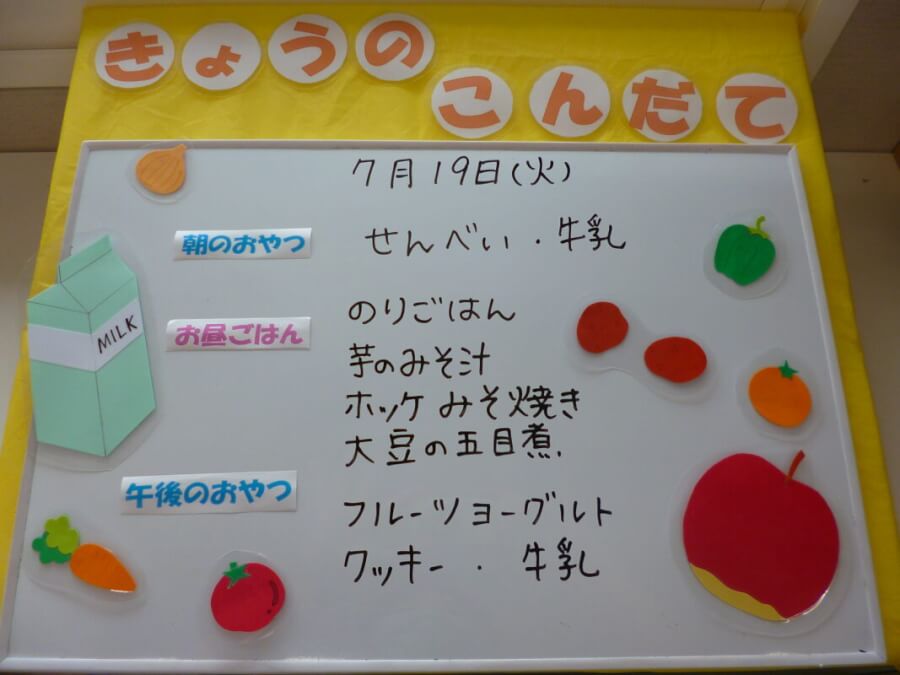 きょうの
こんだて
7月19日(火)
朝のおやつ せんべい・牛乳
お昼ごはん のりごはん
芋のみそ汁
ホッケみそ焼き
大豆の五目煮.
午後のおやつ フルーツヨーグルト
クッキー・牛乳
MILK